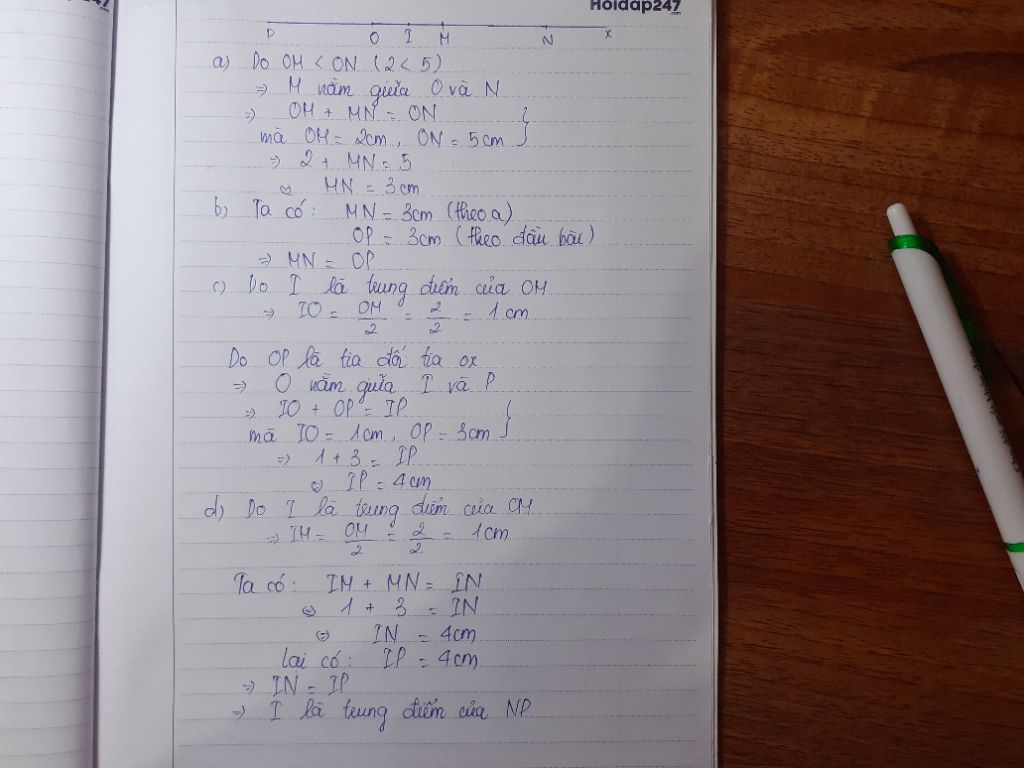 247
Hoidap247
.com
P O I M N x
a) Do OM < ON (2 < 5)
=> M nằm giữa O và N
=> OM + MN = ON }
mà OM = 2cm, ON = 5cm
=> 2 + MN = 5
<=> MN = 3cm
b) Ta có: MN = 3cm (theo a)
OP = 3cm (theo đầu bài)
=> MN = OP
c) Do I là trung điểm của OM
=> IO = OM/2 = 2/2 = 1cm
Do OP là tia đối tia Ox
=> O nằm giữa I và P
=> IO + OP = IP }
mà IO = 1cm, OP = 3cm
=> 1 + 3 = IP
<=> IP = 4cm
d) Do I là trung điểm của OM
=> IM = OM/2 = 2/2 = 1cm
Ta có: IM + MN = IN
<=> 1 + 3 = IN
<=> IN = 4cm
lại có: IP = 4cm
=> IN = IP
=> I là trung điểm của NP